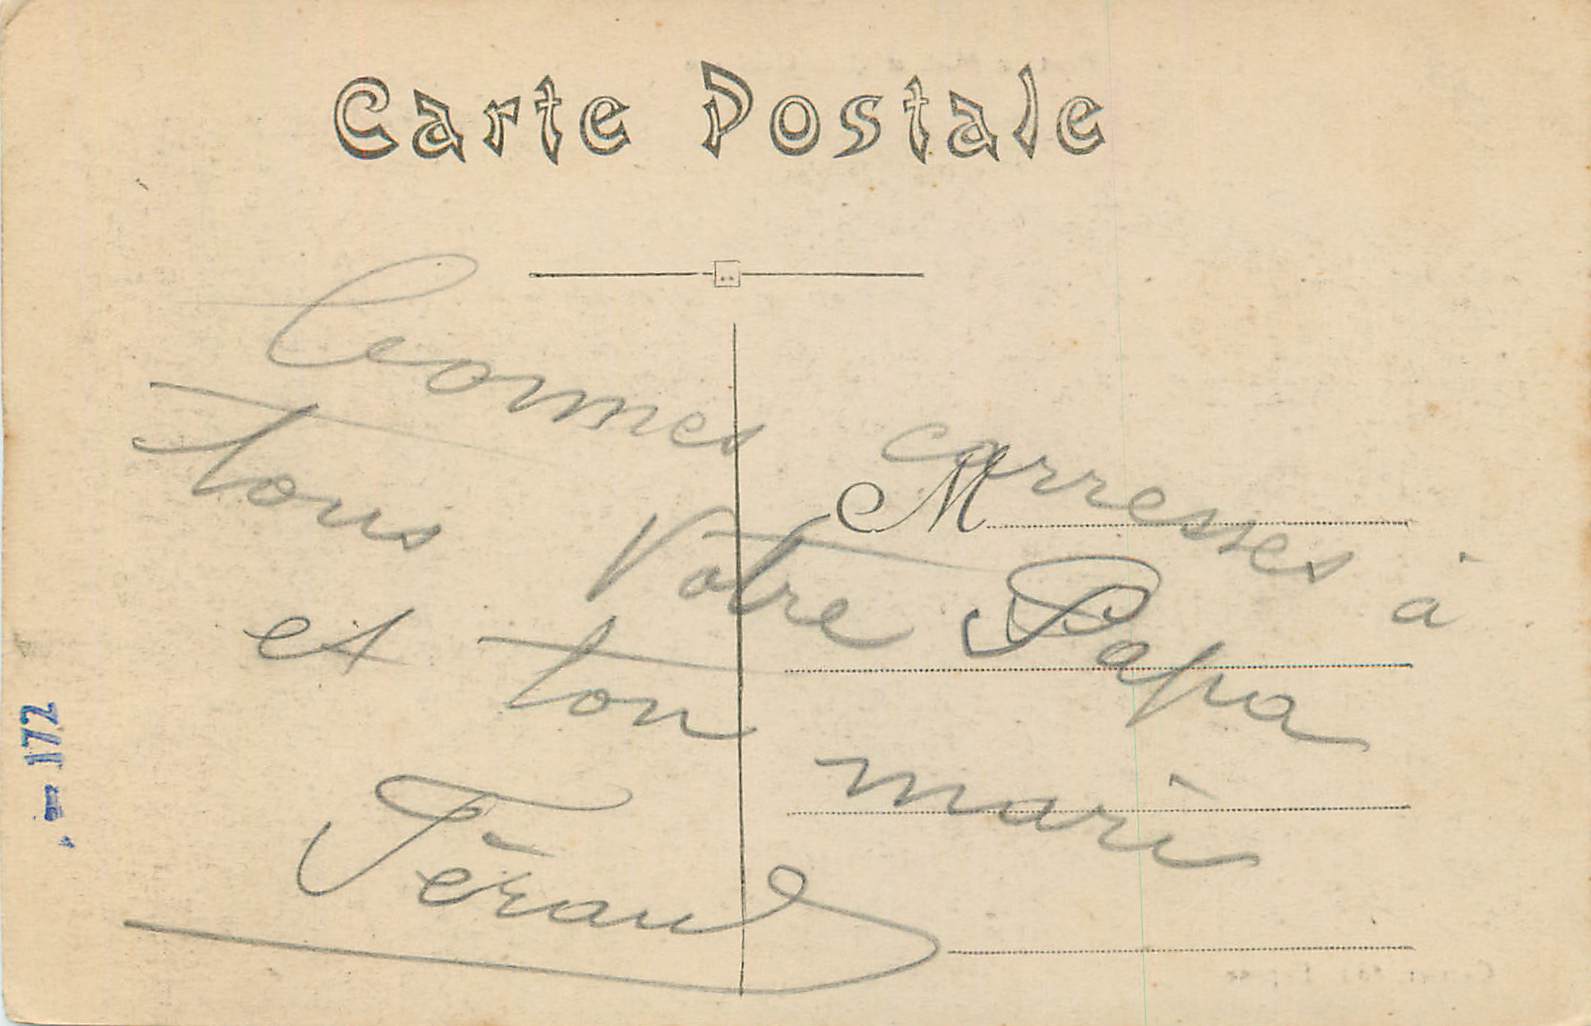 Carte Postale
Bonnes carresses à
M
tous Votre Papa
et ton mari
Féraud
172